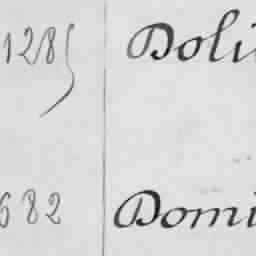 1285 Doli
682 Domi